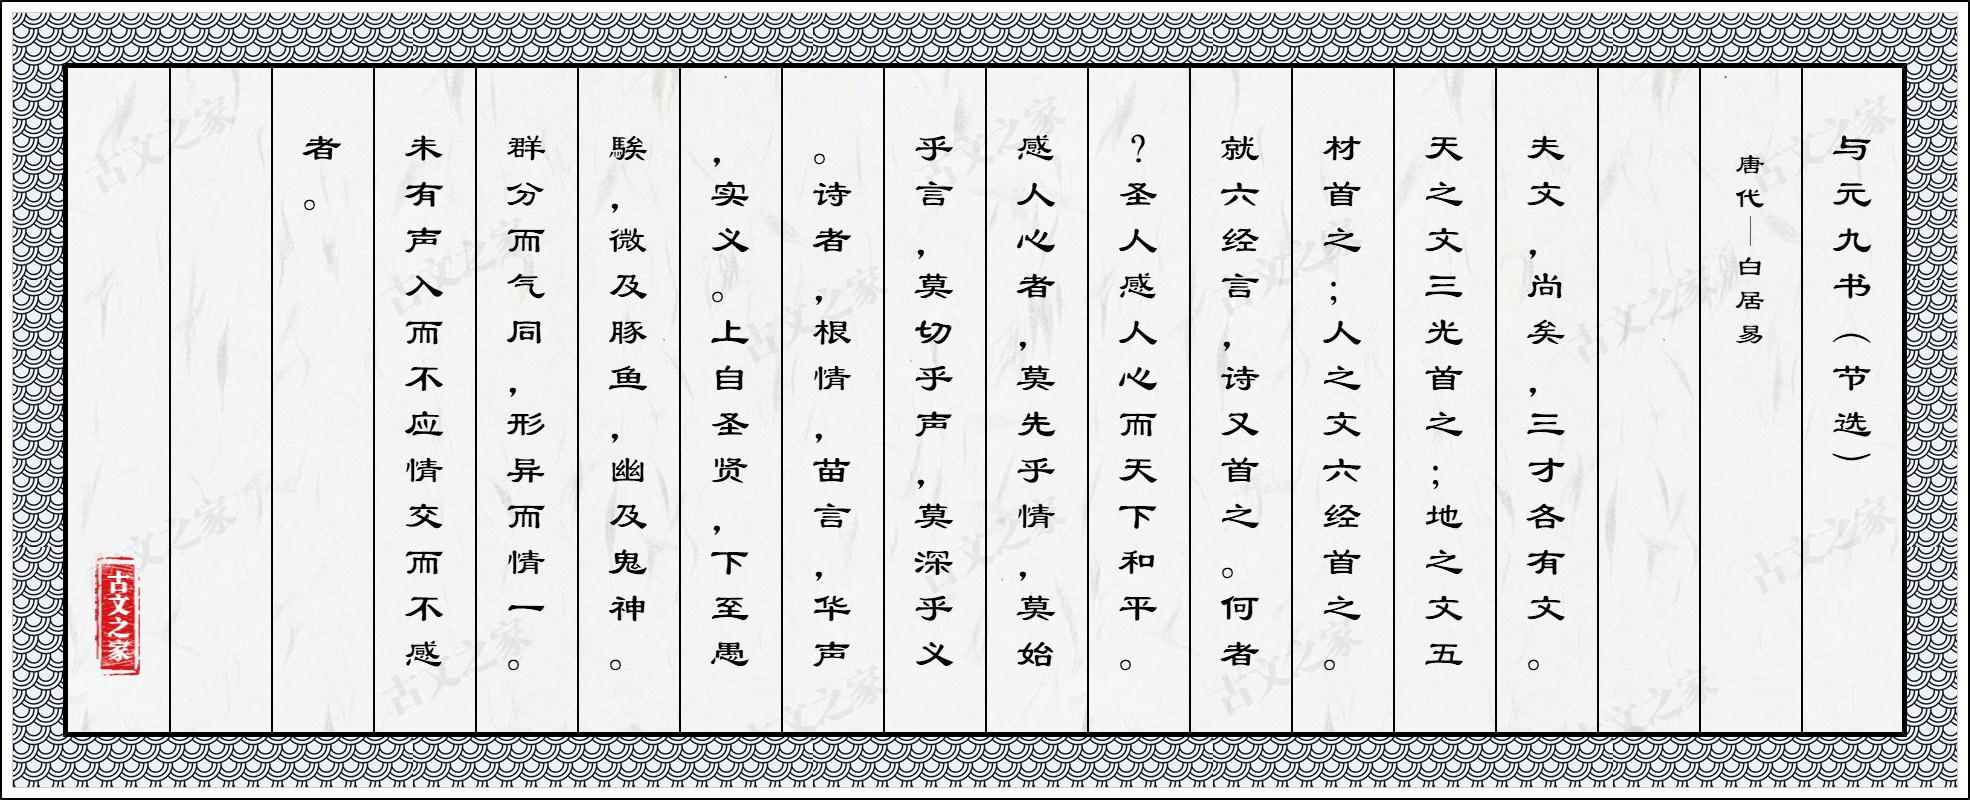 与元九书（节选）
唐代—白居易
夫文，尚矣，三才各有文。
天之文三光首之；地之文五
材首之；人之文六经首之。
就六经言，诗又首之。何者
？圣人感人心而天下和平。
感人心者，莫先乎情，莫始
乎言，莫切乎声，莫深乎义
。诗者，根情，苗言，华声
，实义。上自圣贤，下至愚
騃，微及豚鱼，幽及鬼神。
群分而气同，形异而情一。
未有声入而不应情交而不感
者。
古文之家